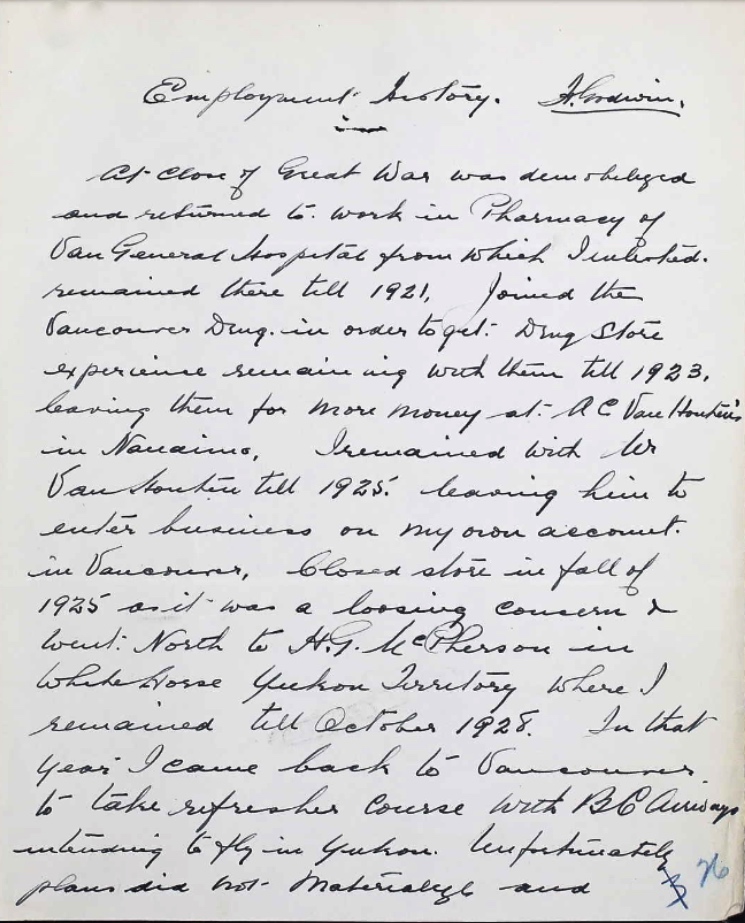 Employment History. H. Godwin.
At close of Great War was demobilized
and returned to work in Pharmacy of
Van General Hospital from which I enlisted.
remained there till 1921, Joined the
Vancouver Drug. in order to get. Drug Store
experience remaining with them till 1923,
leaving them for more money at. A C Van Houten's
in Nanaimo, I remained with Mr
Van Houten till 1925. leaving him to
enter business on my own account.
in Vancouver, Closed store in fall of
1925 as it was a loosing concern &
went. North to H.G. McPherson in
White Horse Yukon Territory where I
remained till October 1928. In that
year I came back to Vancouver
to take refresher course with BC Airways
intending to fly in Yukon. Unfortunately
plans did not materialize and
76